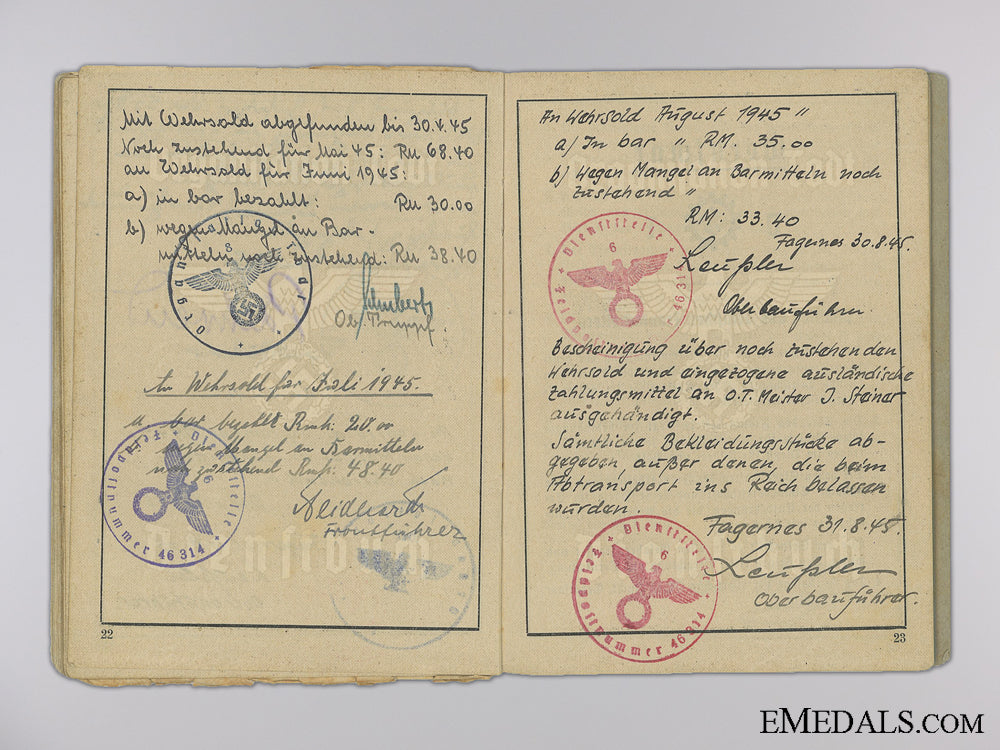 Mit Wehrsold abgefunden bis 30.4.45
Noch zustehend für Mai 45: RM 68.40
an Wehrsold für Juni 1945:
a) in bar bezahlt: RM 30.00
b) wegen Mangel an Bar-
mitteln noch zustehend: RM 38.40
8
An Wehrsold für Juli 1945.
bar bezahlt Rmk: 20.00
wegen Mangel an Barmitteln
noch zustehend Rmk: 48.40
Neidhardt
Frontführer
Dienststelle
6
Feldpostnummer 46 314
22
An Wehrsold August 1945 "
a) In bar " RM. 35.00
b) Wegen Mangel an Barmitteln noch
zustehend "
RM: 33.40
Fagernes 30.8.45.
Leußler
Oberbauführer
Dienststelle
6
Feldpostnummer 46 314
Bescheinigung über noch zustehenden
Wehrsold und eingezogene ausländische
Zahlungsmittel an O.T. Meister J. Steiner
ausgehändigt.
Sämtliche Bekleidungsstücke ab-
gegeben, außer denen, die beim
Abtransport ins Reich belassen
wurden.
Fagernes 31.8.45.
Leußler
Oberbauführer.
Dienststelle
6
Feldpostnummer 46 314
23
EMEDALS.COM